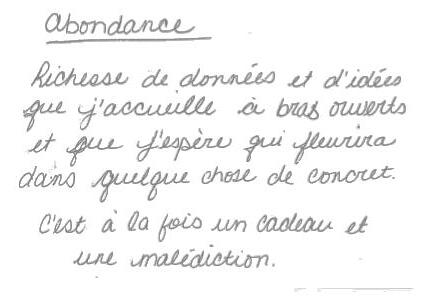 Abondance
Richesse de données et d'idées
que j'accueille à bras ouverts
et que j'espère qui fleurira
dans quelque chose de concret.
C'est à la fois un cadeau et
une malédiction.